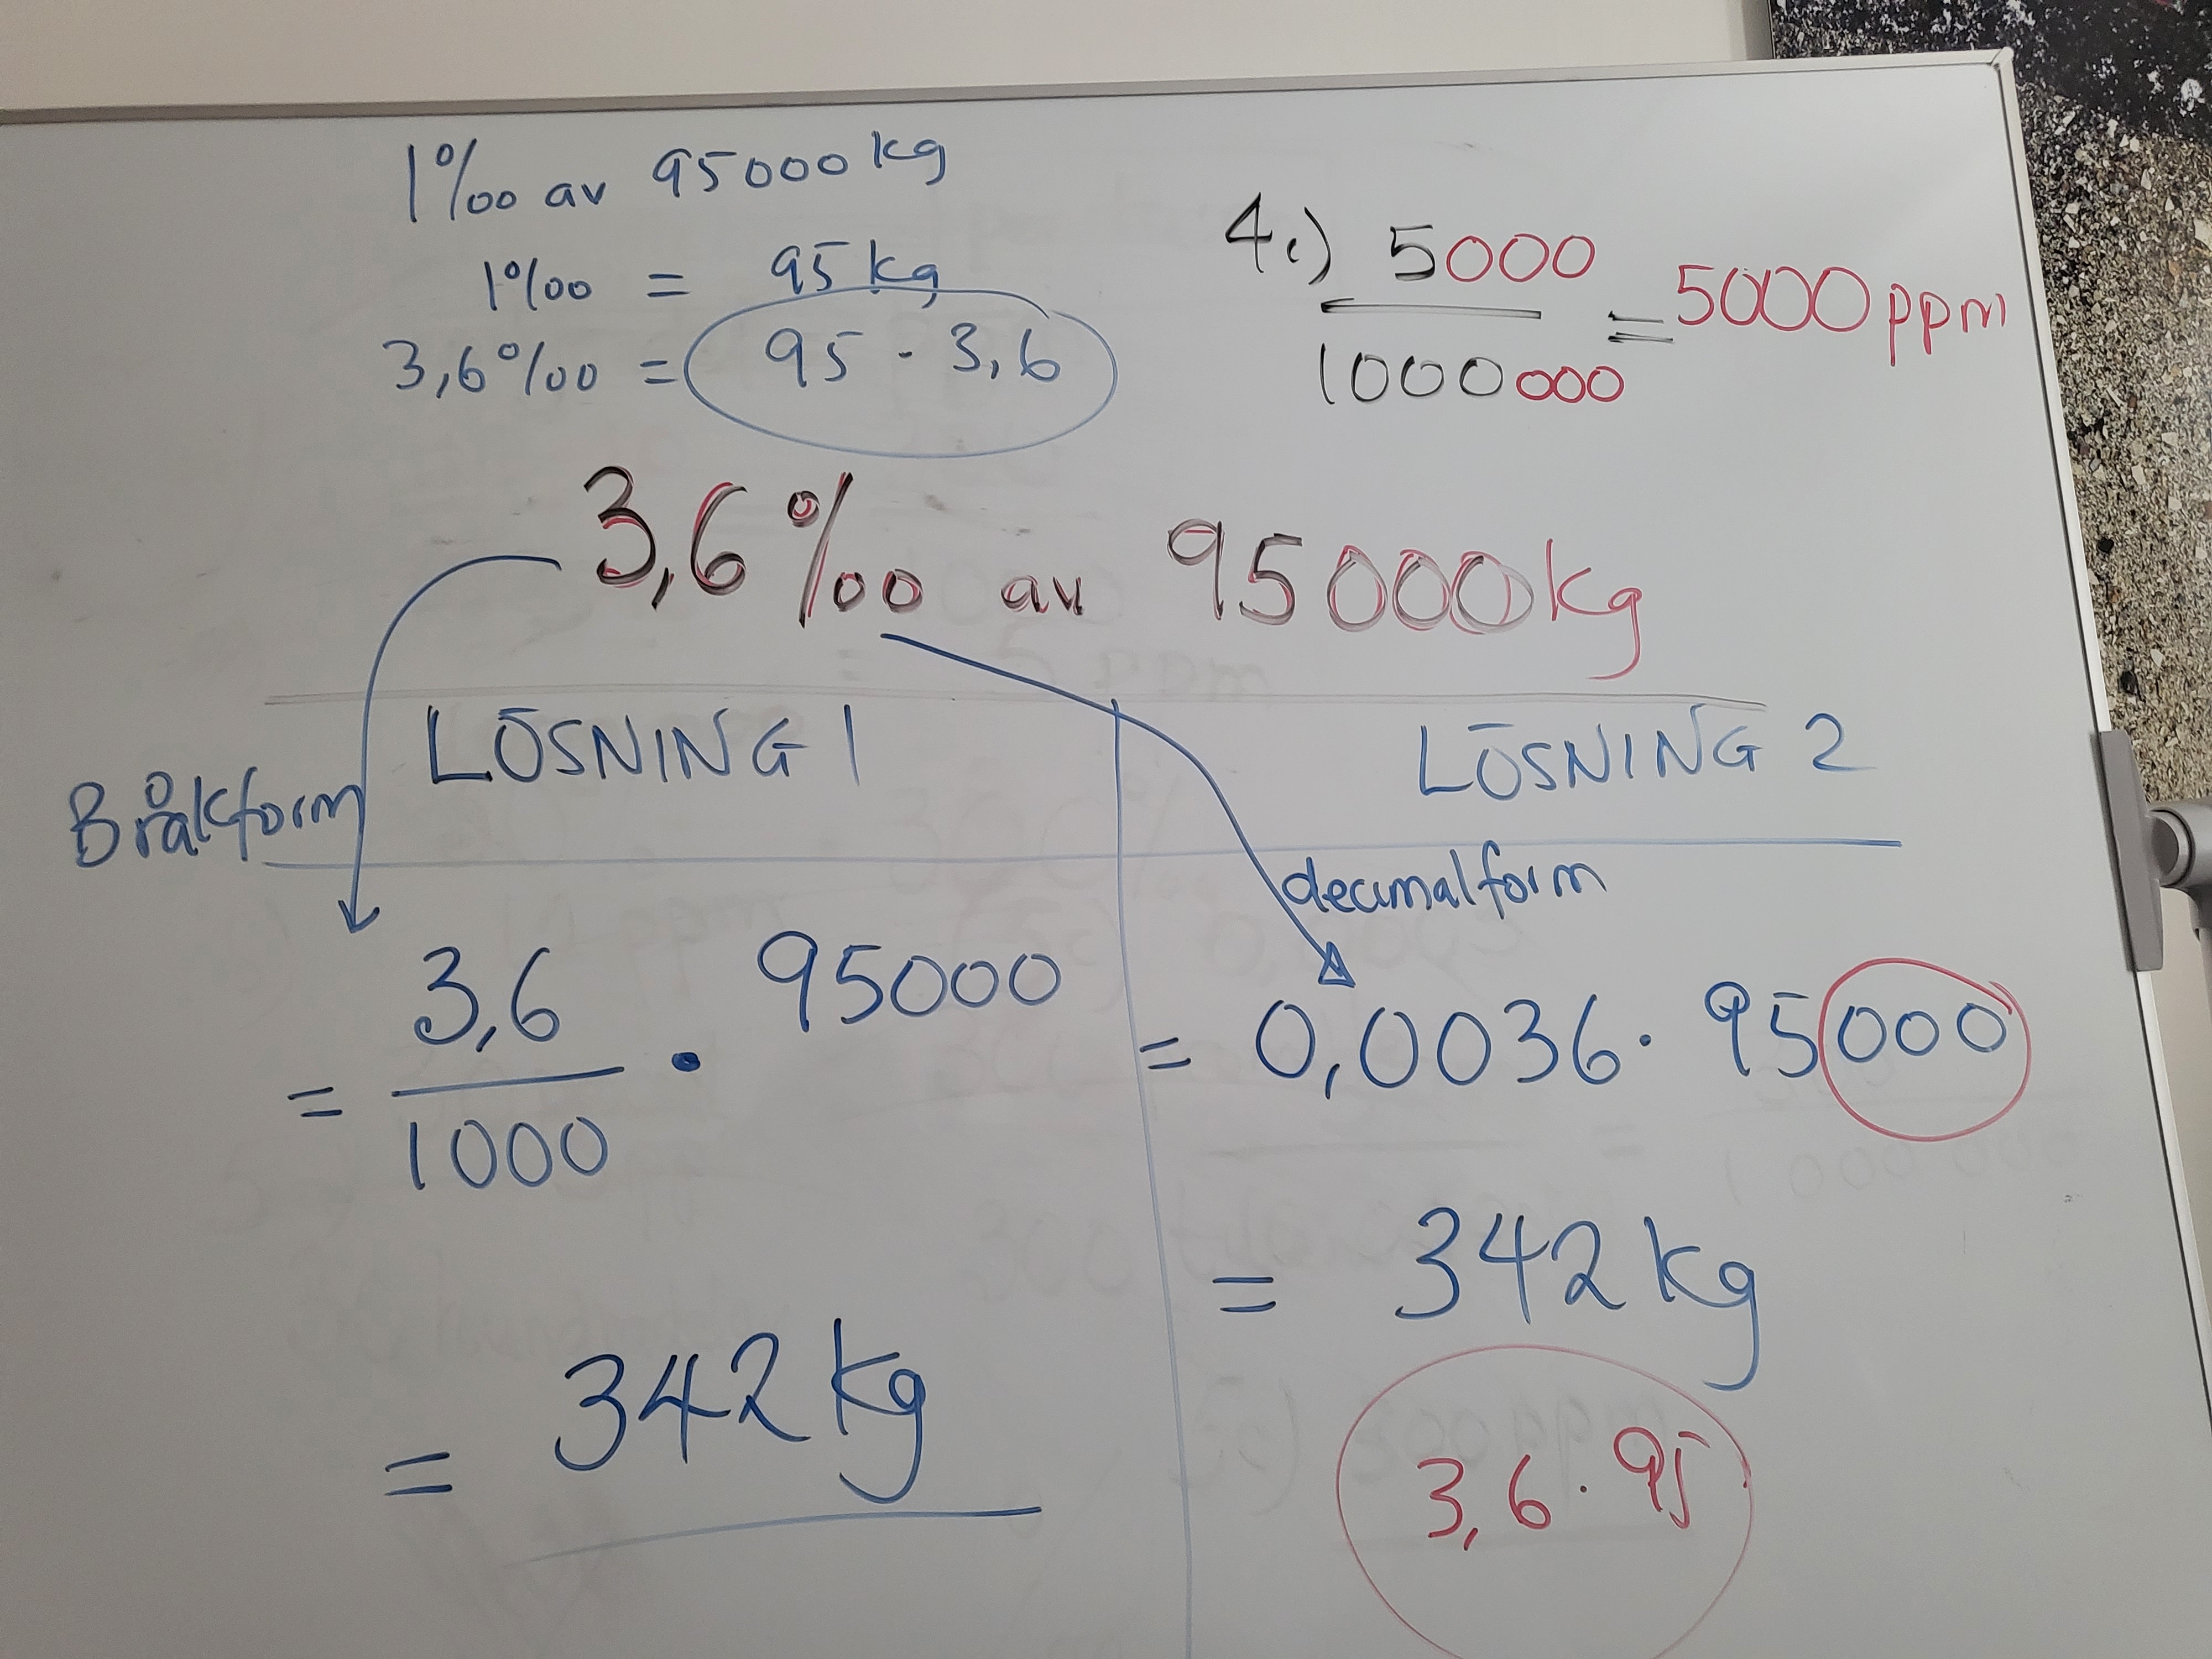 1‰ av 95000 kg
1‰ = 95 kg
3,6‰ = 95 · 3,6
4c) 5000
1000000
= 5000 ppm
3,6‰ av 95000 kg
LÖSNING 1
LÖSNING 2
Bråkform
decimalform
= 3,6 · 95000
1000
= 342 kg
= 0,0036 · 95000
= 342 kg
3,6 · 95